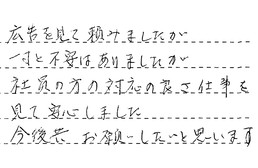 広告を見て頼みましたが
一寸と不安はありましたが
社員の方の対応の良さ仕事を
見て安心しました
今後共 お願いしたいと思います